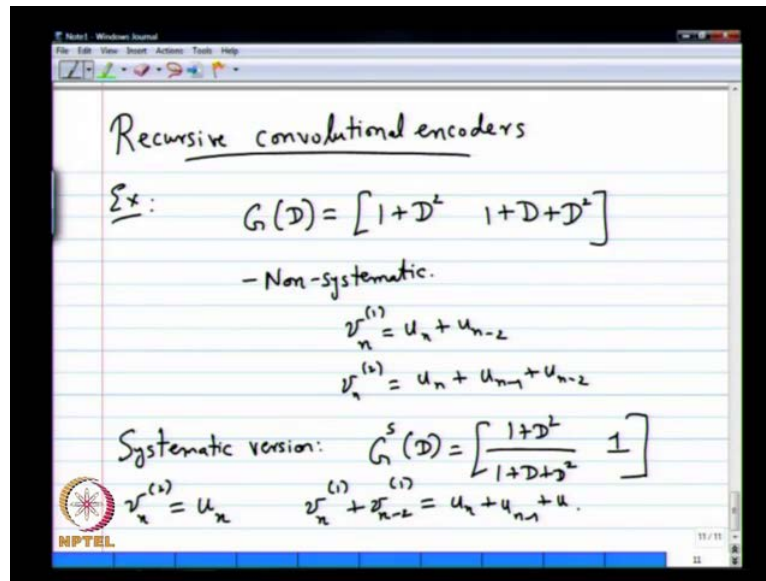 Note1 - Windows Journal
File Edit View Insert Actions Tools Help
Recursive convolutional encoders
Ex: G(D) = [1+D² 1+D+D²]
- Non-systematic.
v_n^(1) = u_n + u_{n-2}
v_n^(2) = u_n + u_{n-1} + u_{n-2}
Systematic version: G^s(D) = [(1+D²)/(1+D+D²) 1]
v_n^(2) = u_n v_n^(1) + v_{n-2}^(1) = u_n + u_{n-1} + u.
NPTEL
11 / 11
11